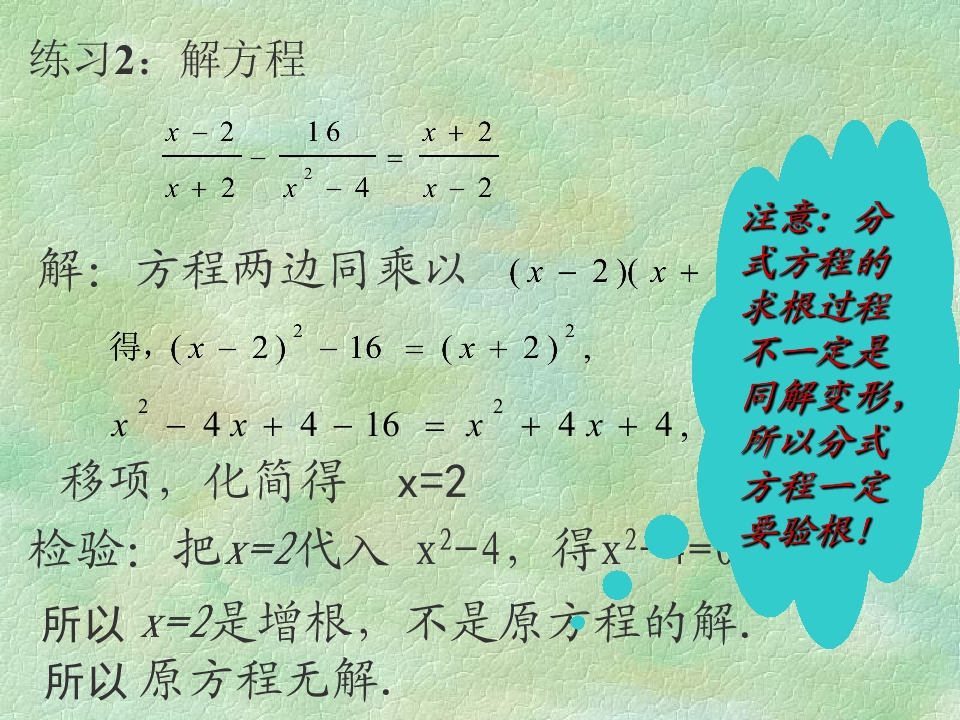 练习2：解方程
x − 2 / x + 2 − 16 / x² − 4 = x + 2 / x − 2
解：方程两边同乘以 (x − 2)(x +
得，(x − 2)² − 16 = (x + 2)²,
x² − 4x + 4 − 16 = x² + 4x + 4,
移项，化简得 x=2
检验：把x=2代入 x²-4，得x²-4=0
所以 x=2是增根，不是原方程的解.
所以 原方程无解.
注意：分
式方程的
求根过程
不一定是
同解变形，
所以分式
方程一定
要验根！